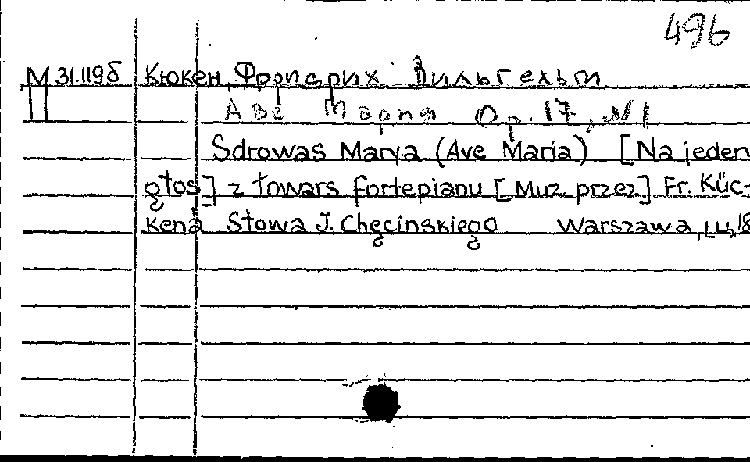 496
М 31.1196 Кюкен, Фридрих Вильгельм
II
Аве Мария Op. 17, №1
Sdrowas Marya (Ave Maria) [Na jeden
głos] z towars fortepianu [Muz. przez] Fr. Küc-
kena Słowa J. Chęcinskiego Warszawa,